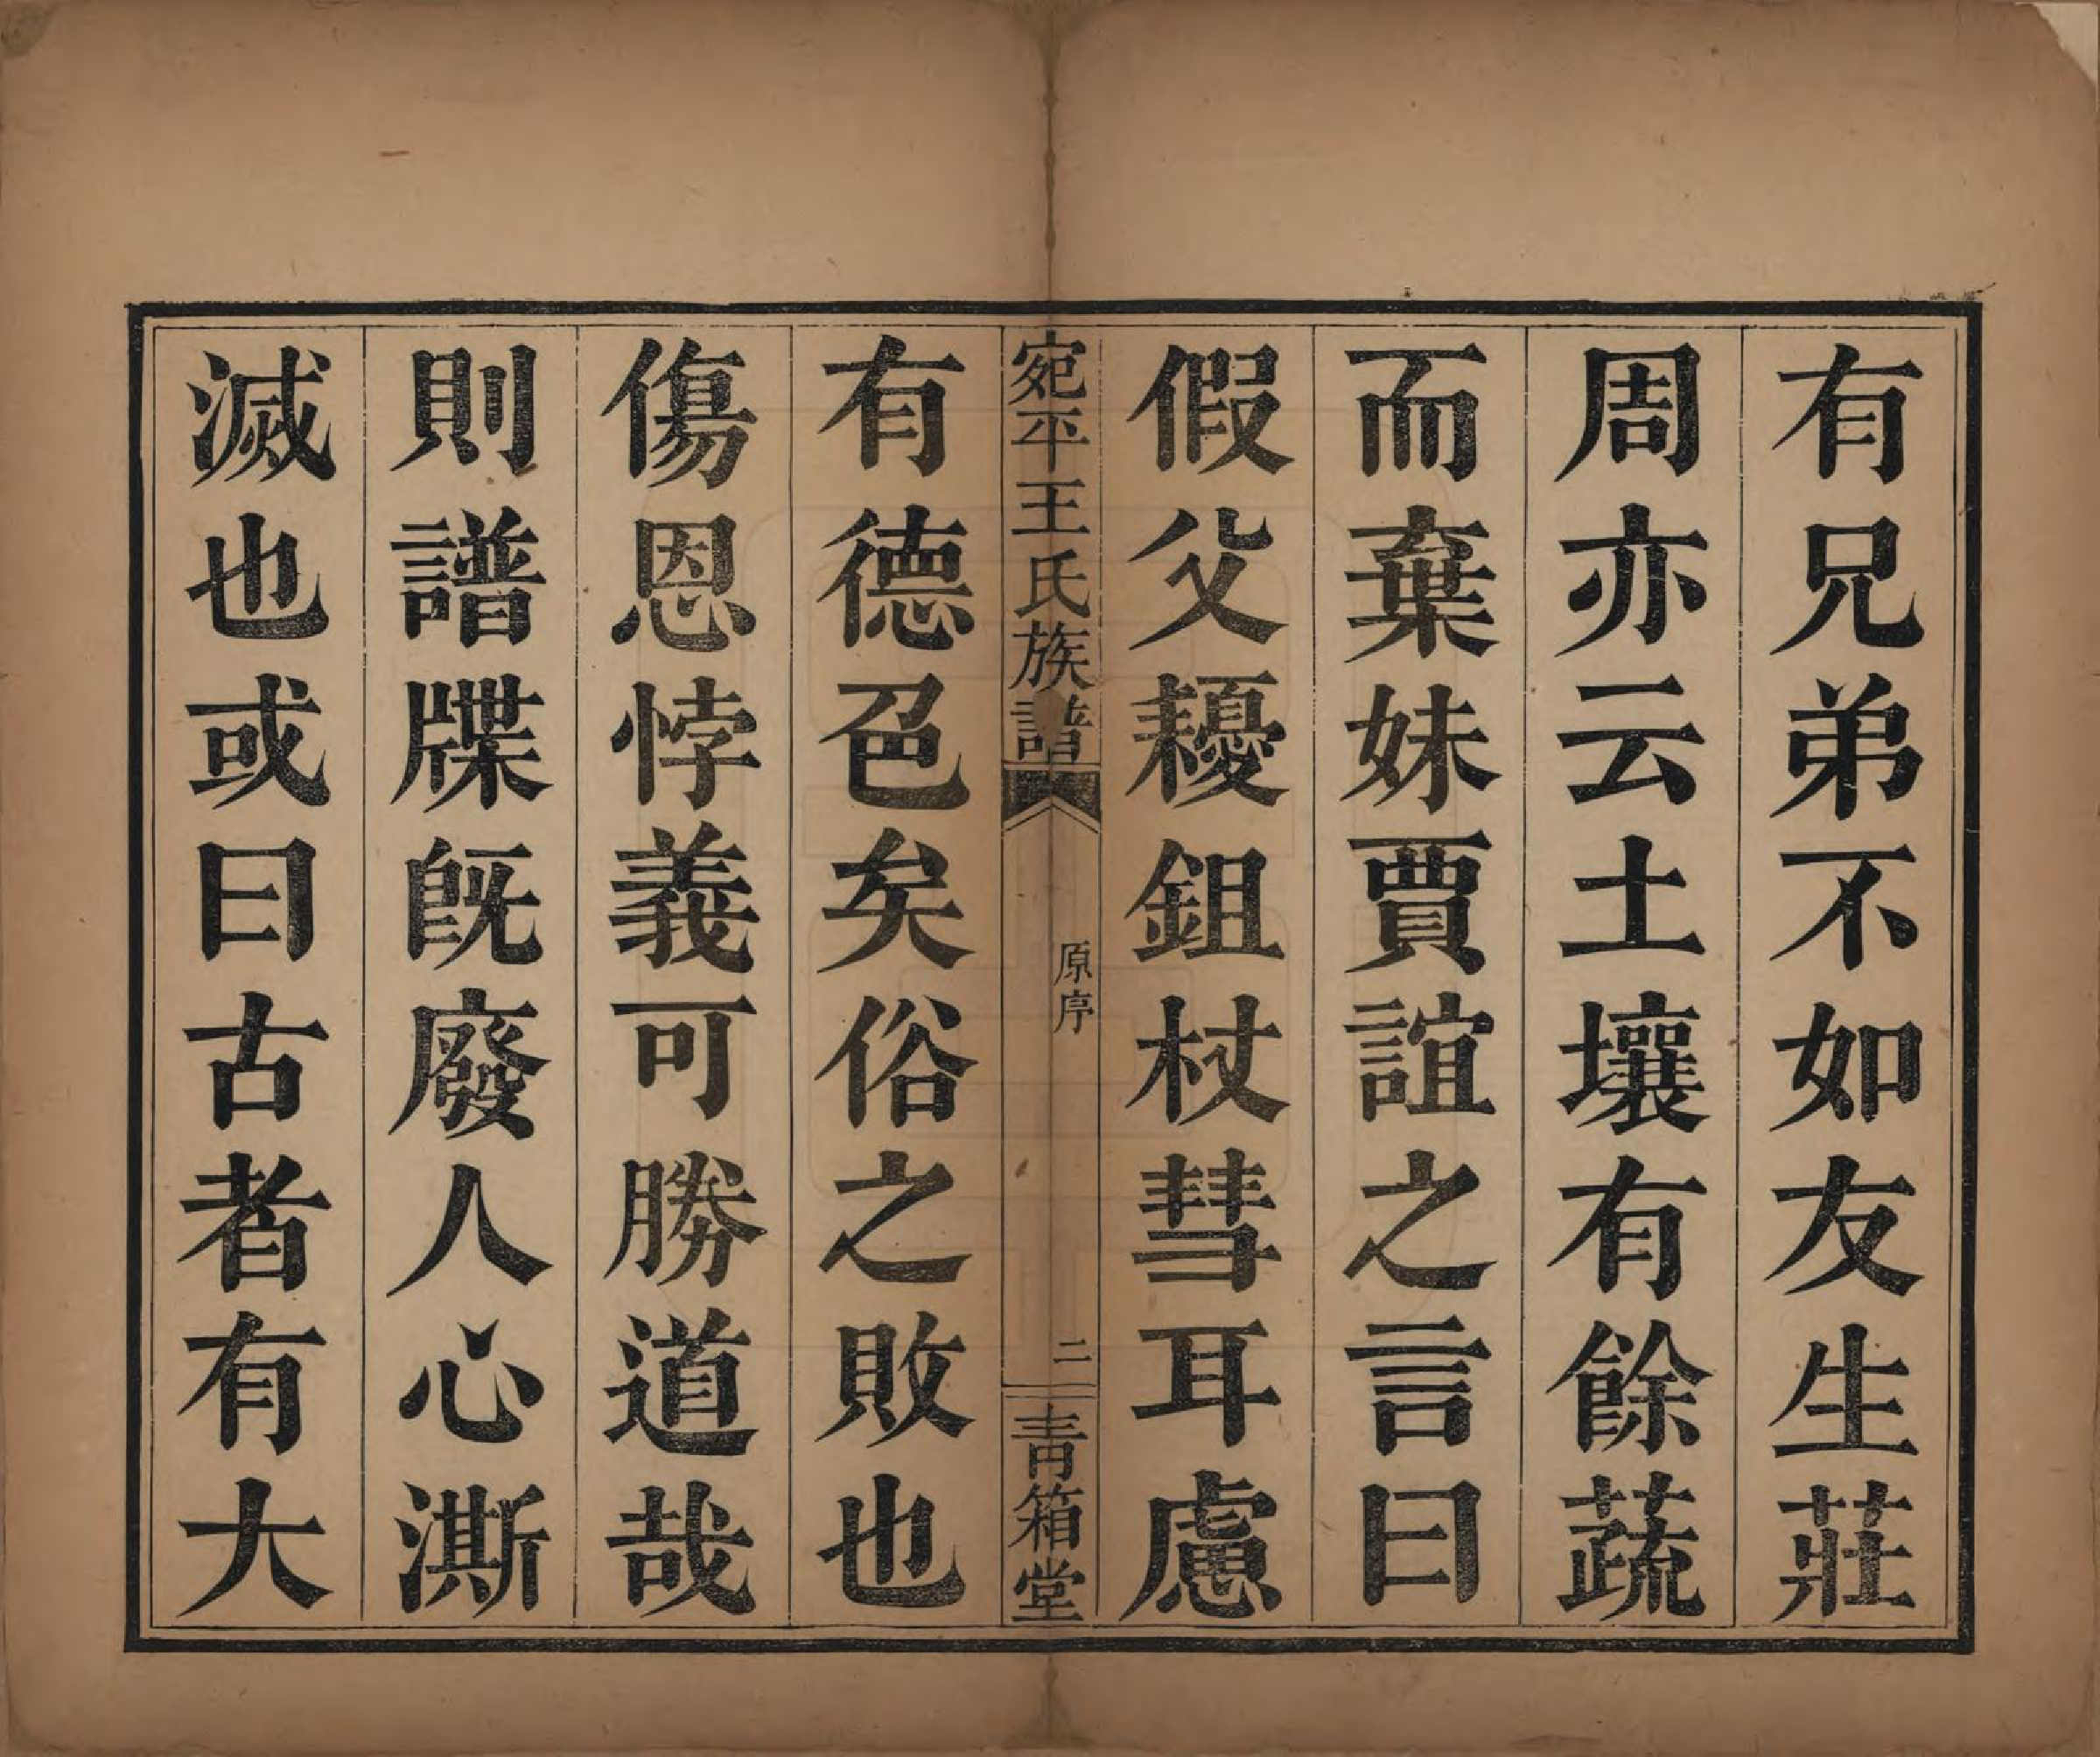 有兄弟不如友生莊
周亦云土壤有餘蔬
而棄妹賈誼之言曰
假父耰鉏杖彗耳慮
宛平王氏族譜
原序
二
青箱堂
有德色矣俗之敗也
傷恩悖義可勝道哉
則譜牒旣廢人心澌
滅也或曰古者有大